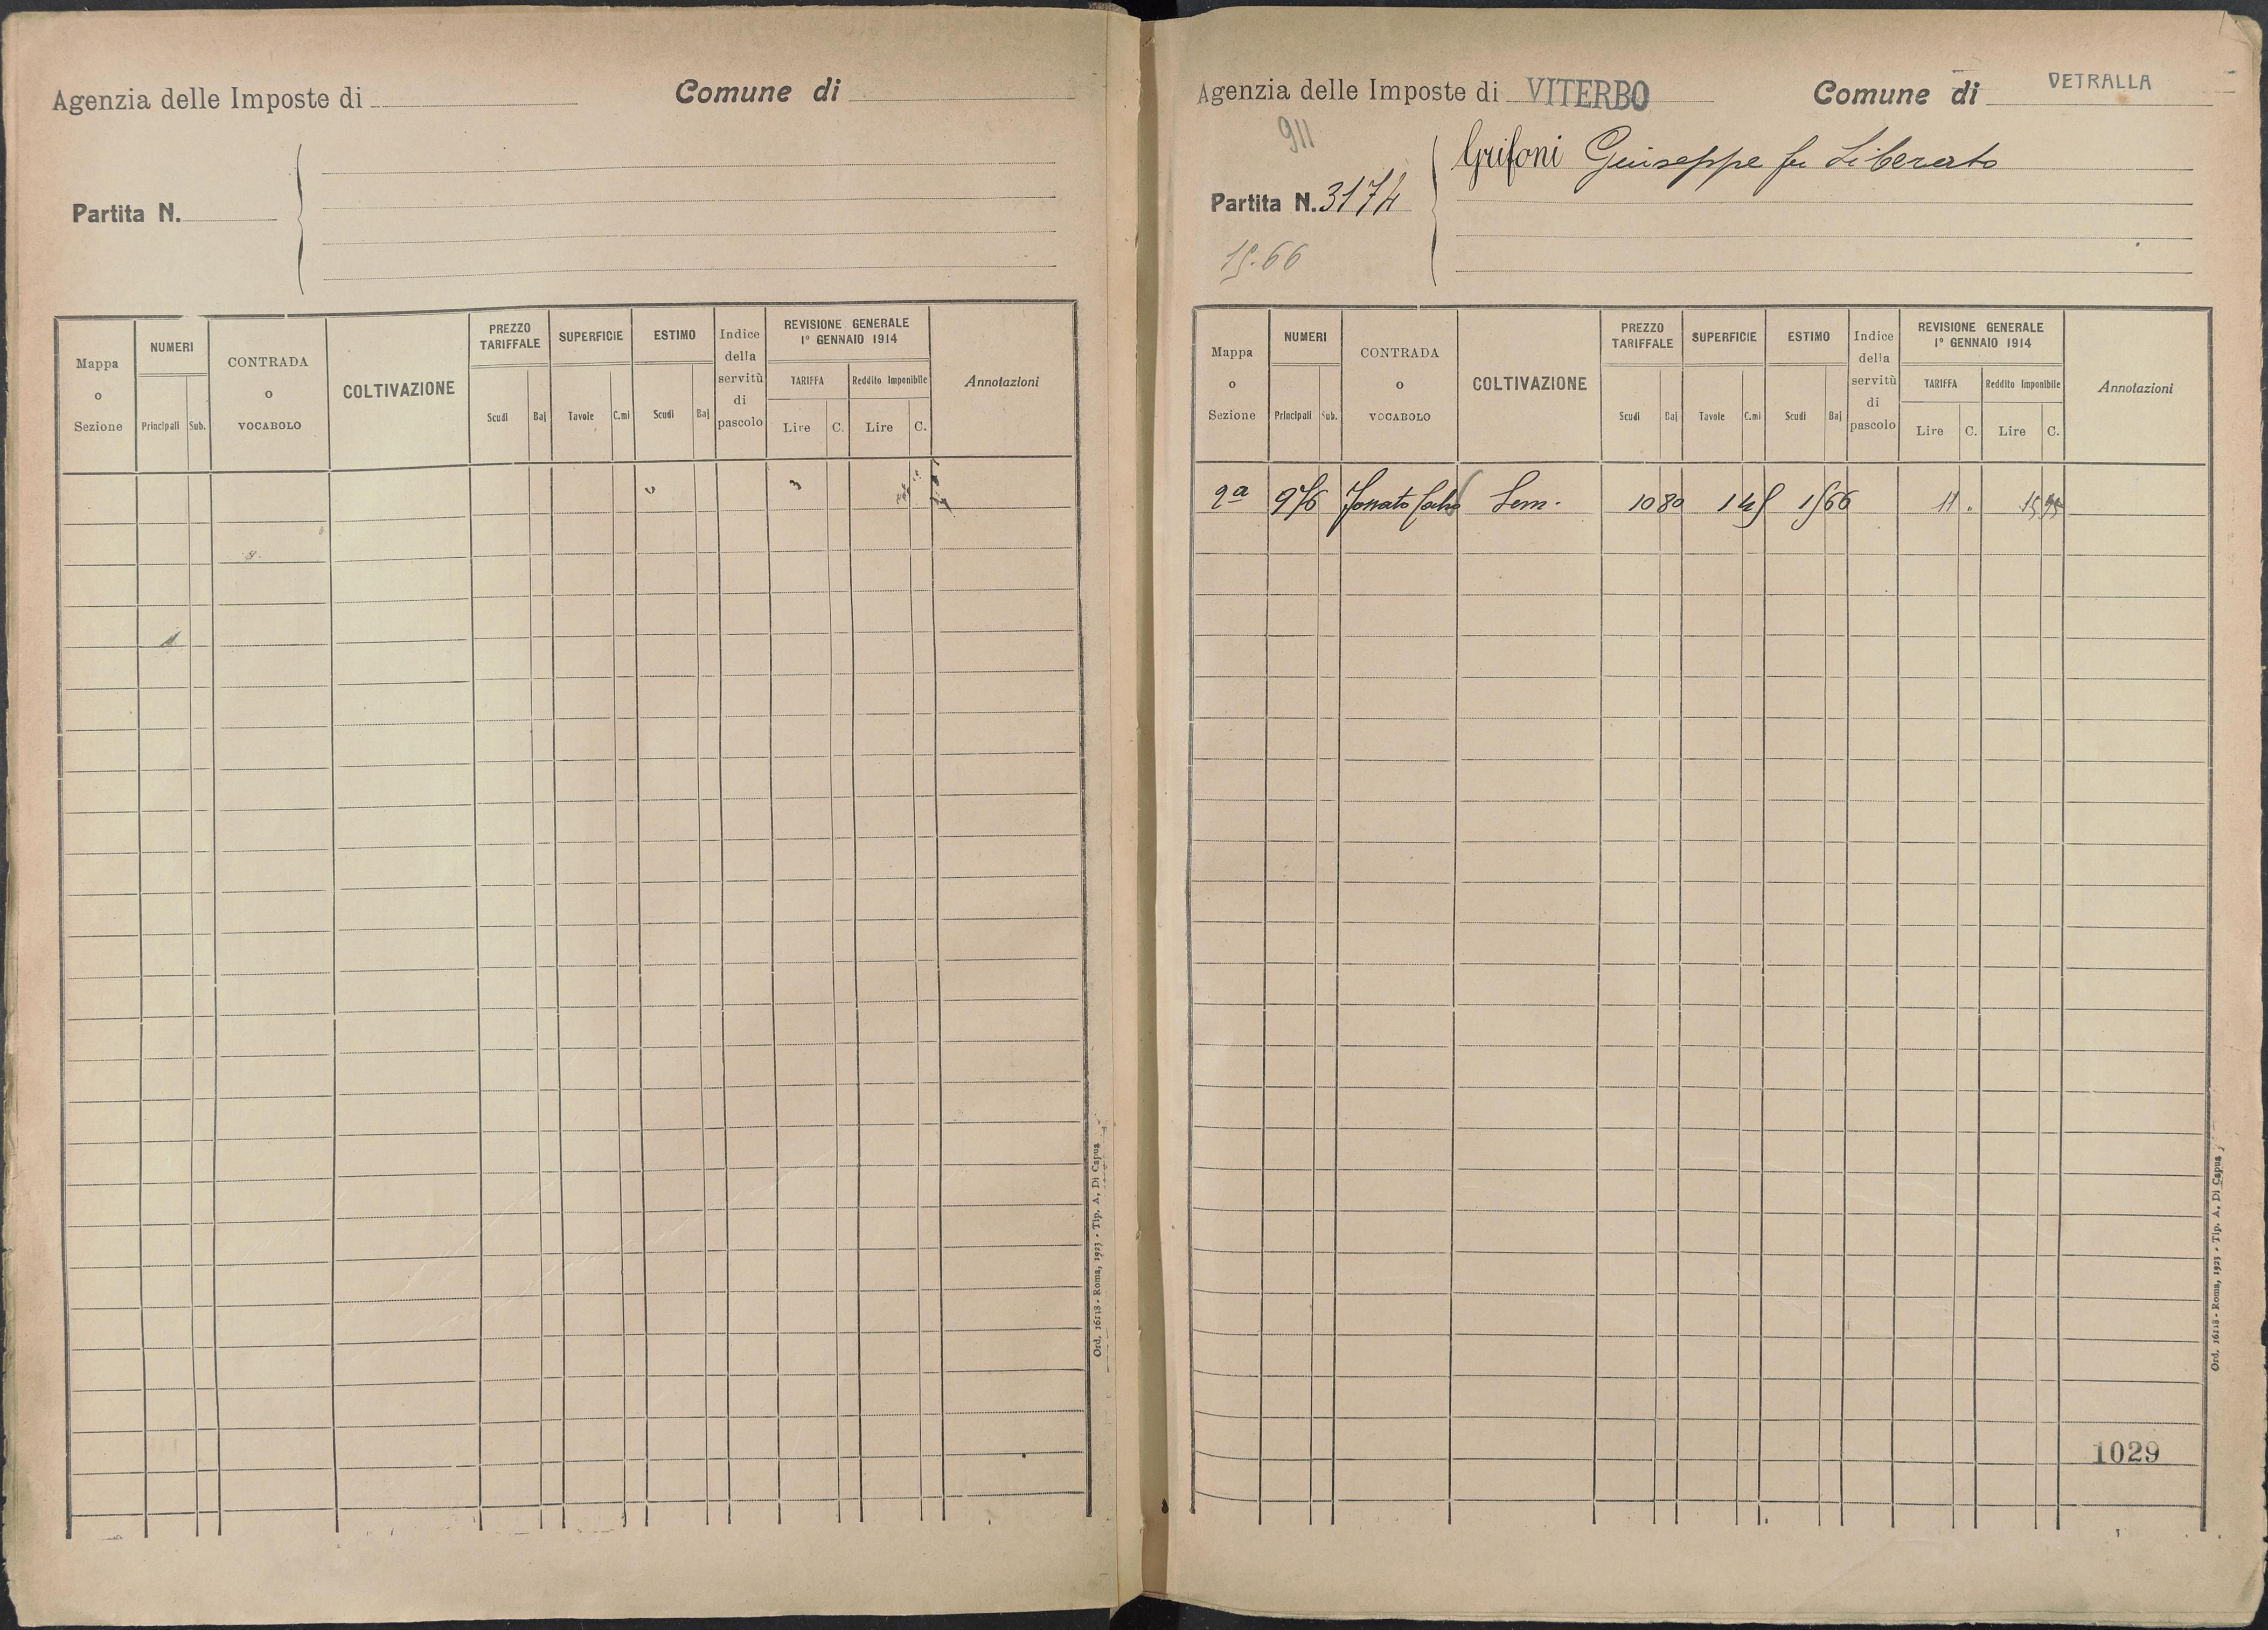 Agenzia delle Imposte di
Comune di
Partita N.
Mappa o Sezione
NUMERI
Principali Sub.
CONTRADA o VOCABOLO
COLTIVAZIONE
PREZZO TARIFFALE
Scudi Baj
SUPERFICIE
Tavole C.mi
ESTIMO
Scudi Baj
Indice della servitù di pascolo
REVISIONE GENERALE
1° GENNAIO 1914
TARIFFA
Lire C.
Reddito Imponibile
Lire C.
Annotazioni
Ord. 16118 - Roma, 1923 - Tip. A. Di Capua
Agenzia delle Imposte di VITERBO
Comune di VETRALLA
911
Grifoni Giuseppe fu Liberato
Partita N. 3174
15.66
Mappa o Sezione
NUMERI
Principali Sub.
CONTRADA o VOCABOLO
COLTIVAZIONE
PREZZO TARIFFALE
Scudi Baj
SUPERFICIE
Tavole C.mi
ESTIMO
Scudi Baj
Indice della servitù di pascolo
REVISIONE GENERALE
1° GENNAIO 1914
TARIFFA
Lire C.
Reddito Imponibile
Lire C.
Annotazioni
2a 976 Sem. 10 80 1 45 15 66 11 . 15 95
1029
Ord. 16118 - Roma, 1923 - Tip. A. Di Capua